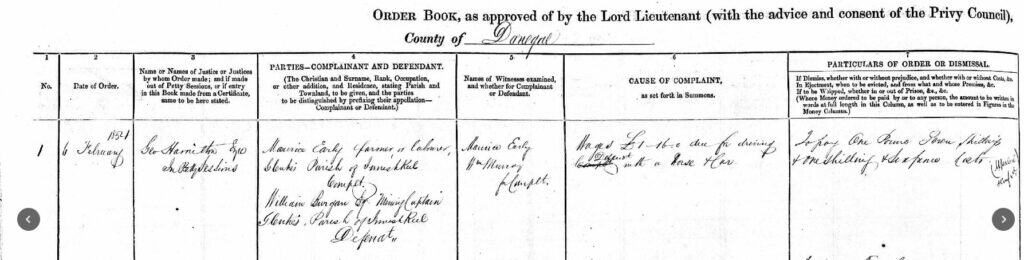 ORDER BOOK, as approved of by the Lord Lieutenant (with the advice and consent of the Privy Council),
County of Donegal
1
2
3
4
5
6
7
No.
Date of Order.
Name or Names of Justice or Justices
by whom Order made; and if made
out of Petty Sessions, or if entry
in this Book made from a Certificate,
same to be here stated.
PARTIES—COMPLAINANT AND DEFENDANT.
(The Christian and Surname, Rank, Occupation,
or other addition, and Residence, stating Parish and
Townland, to be given, and the parties
to be distinguished by prefixing their appellation—
Complainant or Defendant.)
Names of Witnesses examined,
and whether for Complainant
or Defendant.
CAUSE OF COMPLAINT,
as set forth in Summons.
PARTICULARS OF ORDER OR DISMISSAL.
If Dismiss, whether with or without prejudice, and whether with or without Costs, &c.
In Ejectment, when to be evicted, and from what and whose Premises, &c.
If to be Whipped, whether in or out of Prison, &c., &c.
(Where Money ordered to be paid by or to any person, the amount to be written in
words at full length in this Column, as well as to be entered in Figures in the
Money Columns.)
1
6 February
Geo Hamilton Esqr
In Petty Sessions
Maurice Early farmer or labourer,
Glenties Parish of Inniskeel
Complt.
William Esqr Mining Captain
Glenties, Parish of Inniskeel
Defendt
Maurice Early
Wm Murray
for Complt.
Wages £1-16-0 due for driving
Defendt
with a Horse & Car
To pay One Pound Seven Shillings
& One Shilling & Sixpence Costs